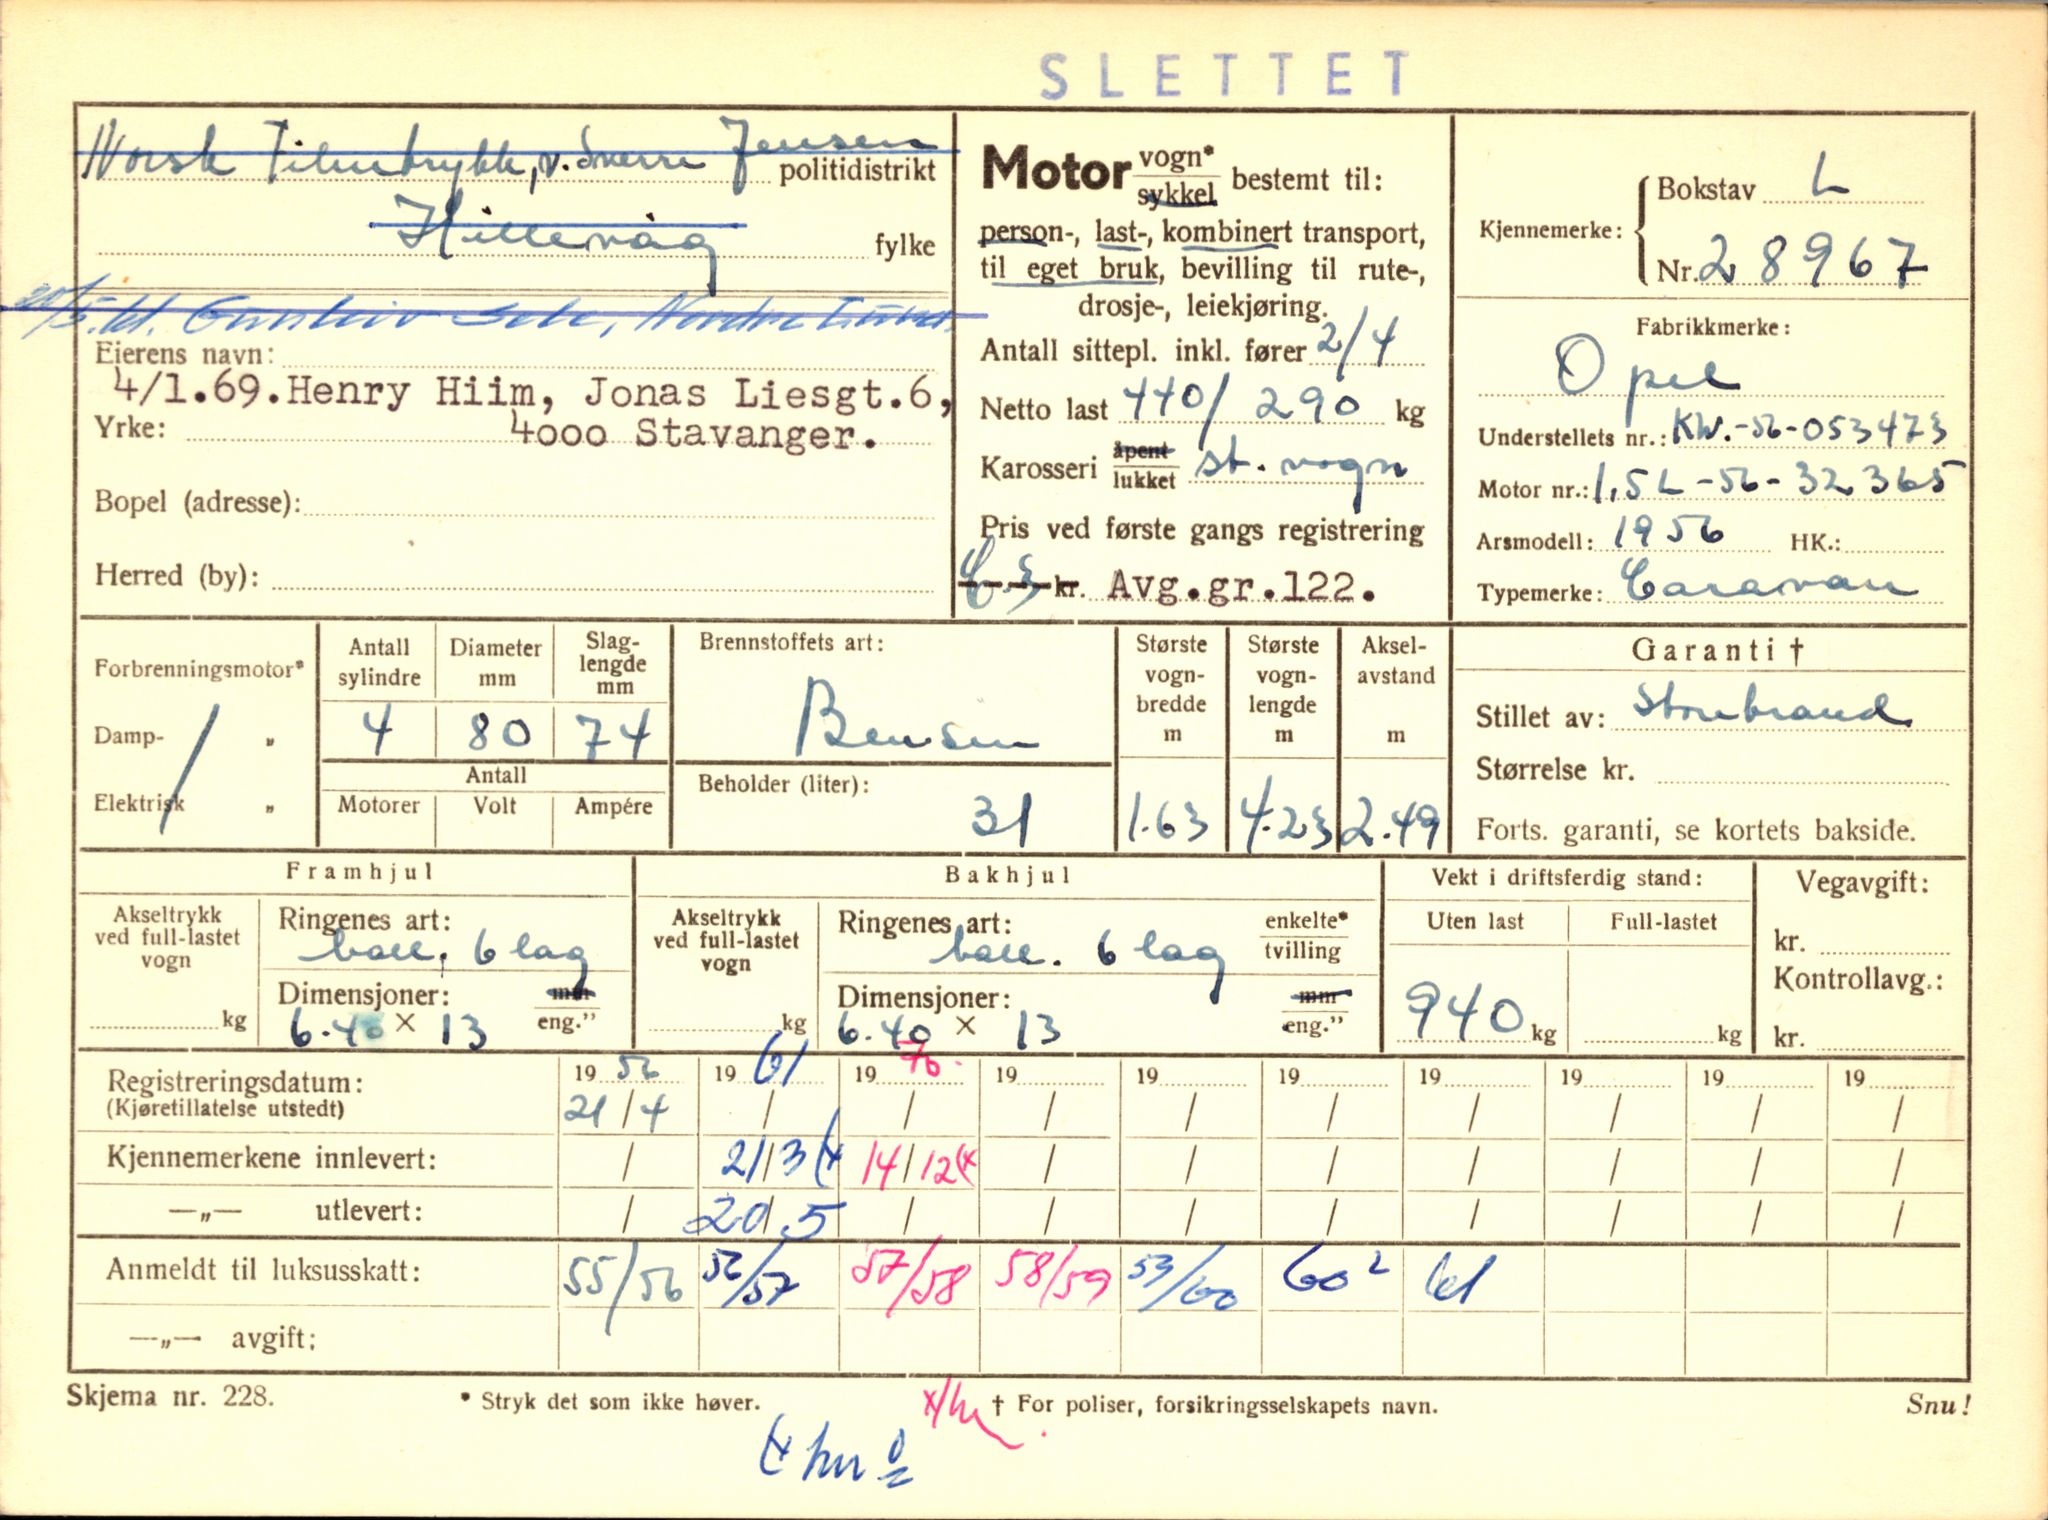 SLETTET
Norsk Filmtrykk, v. Sverre Jensen politidistrikt
Hillevåg fylke
Gunleiv Sele, Nordre
Eierens navn:
4/1.69. Henry Hiim, Jonas Liesgt.6,
Yrke: 4000 Stavanger.
Bopel (adresse):
Herred (by):
Motor vogn* sykkel bestemt til:
person-, last-, kombinert transport,
til eget bruk, bevilling til rute-,
drosje-, leiekjøring.
Antall sittepl. inkl. fører 2/4
Netto last 440/290 kg
Karosseri åpent lukket st. vogn
Pris ved første gangs registrering
kr. Avg.gr.122.
Kjennemerke: Bokstav L
Nr. 28967
Fabrikkmerke:
Opel
Understellets nr.: KW.-56-053473
Motor nr.: 1,5L-56-32365
Årsmodell: 1956 HK.:
Typemerke: Caravan
Forbrenningsmotor*
Damp- „
Elektrisk „
Antall sylindre
Diameter mm
Slaglengde mm
4 80 74
Antall
Motorer Volt Ampére
Brennstoffets art:
Bensin
Beholder (liter):
31
Største vognbredde m
Største vognlengde m
Akselavstand m
1.63 4.23 2.49
Garanti †
Stillet av: Storebrand
Størrelse kr.
Forts. garanti, se kortets bakside.
Framhjul
Akseltrykk ved full-lastet vogn
kg
Ringenes art:
ball. 6 lag
Dimensjoner: mm eng.”
6.40 × 13
Bakhjul
Akseltrykk ved full-lastet vogn
kg
Ringenes art: enkelte* tvilling
ball. 6 lag
Dimensjoner: mm eng.”
6.40 × 13
Vekt i driftsferdig stand:
Uten last Full-lastet
940 kg kg
Vegavgift:
kr.
Kontrollavg.:
kr.
Registreringsdatum: 19 56 19 61 19 70. 19 19 19 19 19 19 19
(Kjøretillatelse utstedt) 21/4 / / / / / / / / /
Kjennemerkene innlevert: / 21/3 (x 14/12 (x / / / / / / /
—„— utlevert: / 20/5 / / / / / / / /
Anmeldt til luksusskatt: 55/56 56/57 57/58 58/59 59/60 60² 61
—„— avgift:
Skjema nr. 228.
* Stryk det som ikke høver.
† For poliser, forsikringsselskapets navn.
Snu!